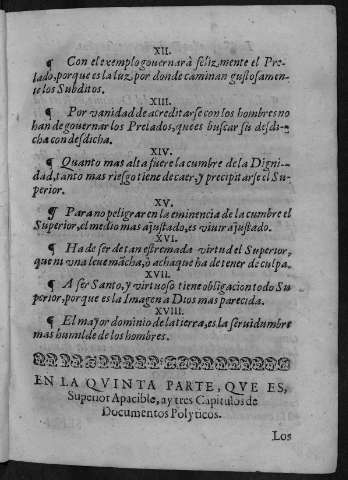 XII.
¶ Con el exemplo gouernarà feliz mente el Pre-
lado, porque es la luz, por donde caminan gustosamen-
te los Subditos.
XIII.
¶ Por vanidad de acreditarse con los hombres no
han de gouernar los Prelados, que es buscar su desdi-
cha con desdicha.
XIV.
¶ Quanto mas alta fuere la cumbre de la Digni-
dad, tanto mas riesgo tiene de caer, y precipitarse el Su-
perior.
XV.
¶ Para no peligrar en la eminencia de la cumbre el
Superior, el medio mas ajustado, es viuir ajustado.
XVI.
¶ Ha de ser de tan estremada virtud el Superior,
que ni vna leue mãcha, ò achaque ha de tener de culpa.
XVII.
¶ A ser Santo, y virtuoso tiene obligacion todo Su
perior, porque es la Imagen a Dios mas parecida.
XVIII.
¶ El mayor dominio de la tierra, es la seruidumbre
mas humilde de los hombres.
EN LA QVINTA PARTE, QVE ES,
Superior Apacible, ay tres Capitulos de
Documentos Polyticos.
Los